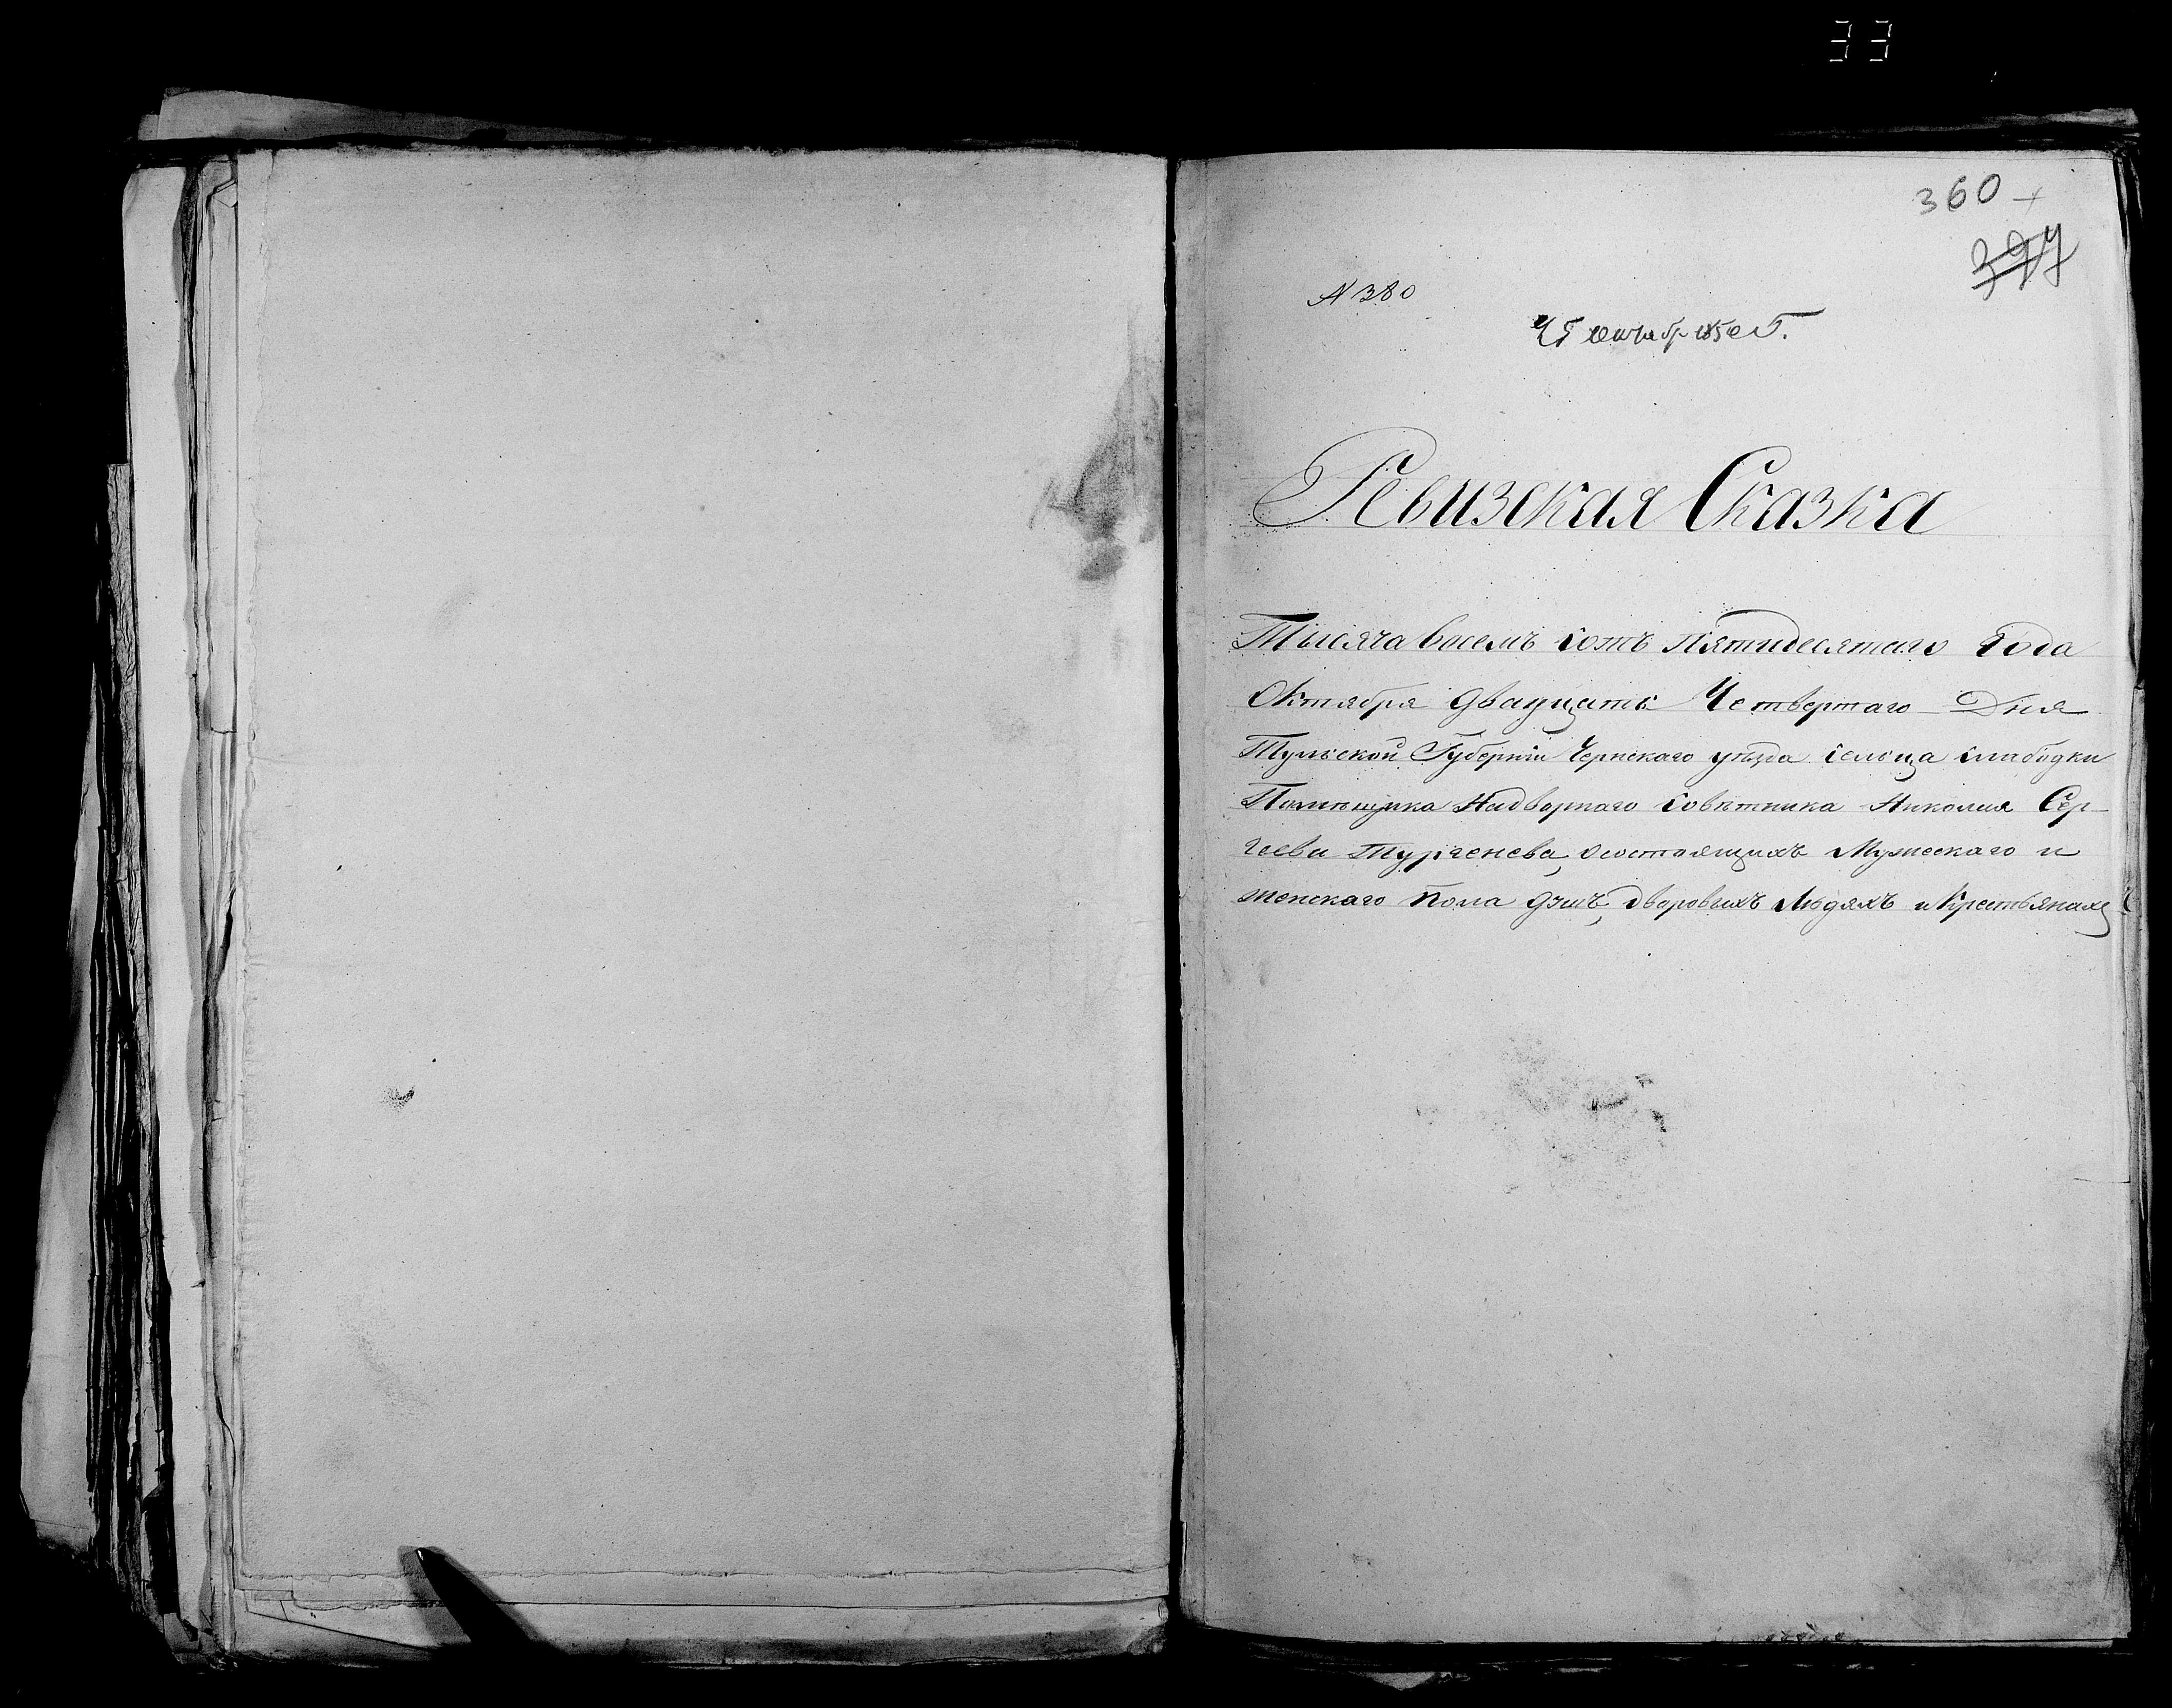 33
360
397
N 380
25 октябр 1850 г.
Ревизская Сказка
Тысяча восемь сотъ пятидесятаго года
Октября двадцать Четвертаго Дня
Тульской Губерніи Чернскаго уѣзда сельца слабодки
Помѣщика Надворнаго совѣтника Николая Сер-
геева Тургенева, осостоящихъ Мужескаго и
женскаго пола душъ, дворовыхъ людяхъ и Крестьянахъ